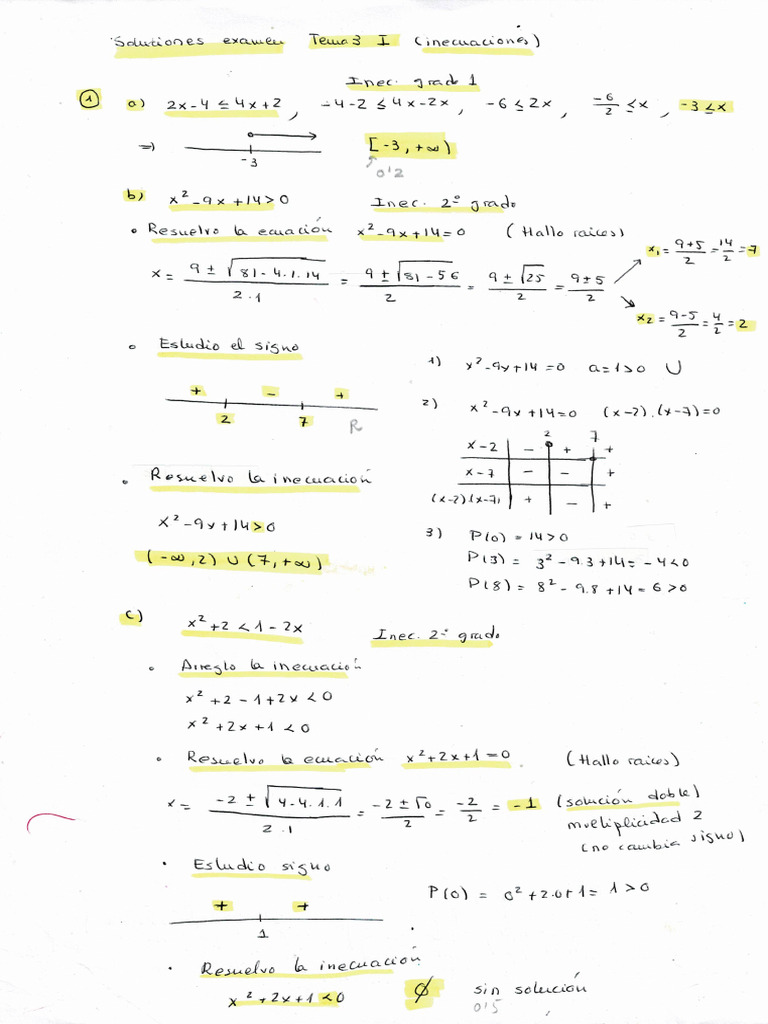 Soluciones examen Tema 3 I (inecuaciones)
Inec. grado 1
① a) 2x-4 ≤ 4x+2, -4-2 ≤ 4x-2x, -6 ≤ 2x, -6/2 ≤ x, -3 ≤ x
⇒) -3 [-3, +∞)
0'2
b) x²-9x+14>0 Inec. 2º grado
• Resuelvo la ecuación x²-9x+14=0 (Hallo raíces)
x = (9 ± √(81-4.1.14))/(2.1) = (9 ± √(81-56))/2 = (9 ± √25)/2 = (9±5)/2
x₁ = (9+5)/2 = 14/2 = 7
x₂ = (9-5)/2 = 4/2 = 2
• Estudio el signo
+ - +
2 7 R
1) x²-9x+14=0 a=1>0 ∪
2) x²-9x+14=0 (x-2).(x-7)=0
2 7
x-2 - + +
x-7 - - +
(x-2).(x-7) + - +
• Resuelvo la inecuación
x²-9x+14>0
(-∞,2) ∪ (7,+∞)
3) P(0) = 14>0
P(3) = 3²-9.3+14 = -4<0
P(8) = 8²-9.8+14 = 6>0
c) x²+2<1-2x Inec. 2º grado
• Arreglo la inecuación
x²+2-1+2x<0
x²+2x+1<0
• Resuelvo la ecuación x²+2x+1=0 (Hallo raíces)
x = (-2 ± √(4-4.1.1))/(2.1) = (-2 ± √0)/2 = -2/2 = -1 (solución doble)
multiplicidad 2
(no cambia signo)
• Estudio signo
+ +
1
P(0) = 0²+2.0+1 = 1>0
• Resuelvo la inecuación
x²+2x+1<0 Ø sin solución
0'5